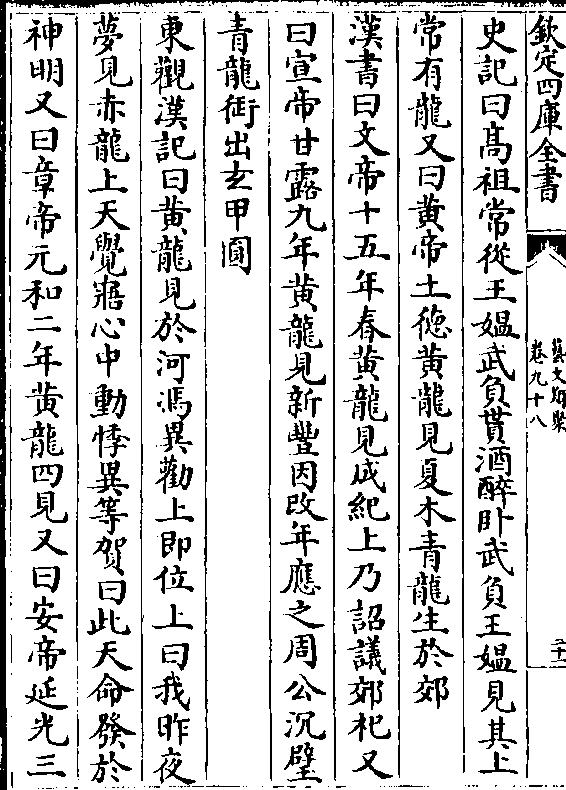 欽定四庫全書
藝文類聚
卷九十八
二十一
史記曰髙祖常從王媪武負貰酒醉卧武負王媪見其上
常有龍又曰黄帝土徳黄龍見夏木青龍生於郊
漢書曰文帝十五年春黄龍見成紀上乃詔議郊祀又
曰宣帝甘露九年黄龍見新豐因改年應之周公沉璧
青龍銜出玄甲圖
東觀漢記曰黄龍見於河馮異勸上即位上曰我昨夜
夢見赤龍上天覺寤心中動悸異等賀曰此天命發於
神明又曰章帝元和二年黄龍四見又曰安帝延光三